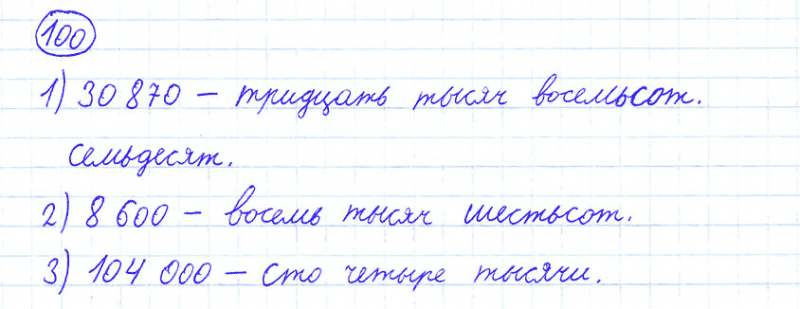 100
1) 30 870 – тридцать тысяч восемьсот.
семьдесят.
2) 8 600 – восемь тысяч шестьсот.
3) 104 000 – сто четыре тысячи.